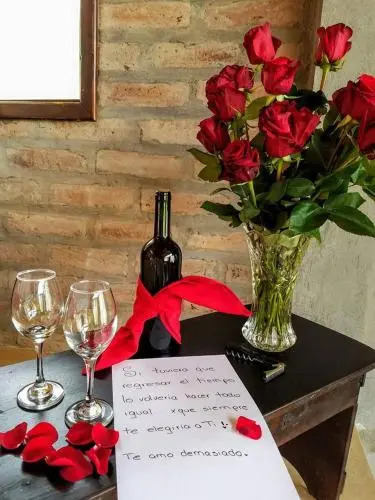 Si tuviera que
regresar el tiempo
lo volveria hacer todo
igual. xque siempre
te elegiria a Ti!
Te amo demasiado.